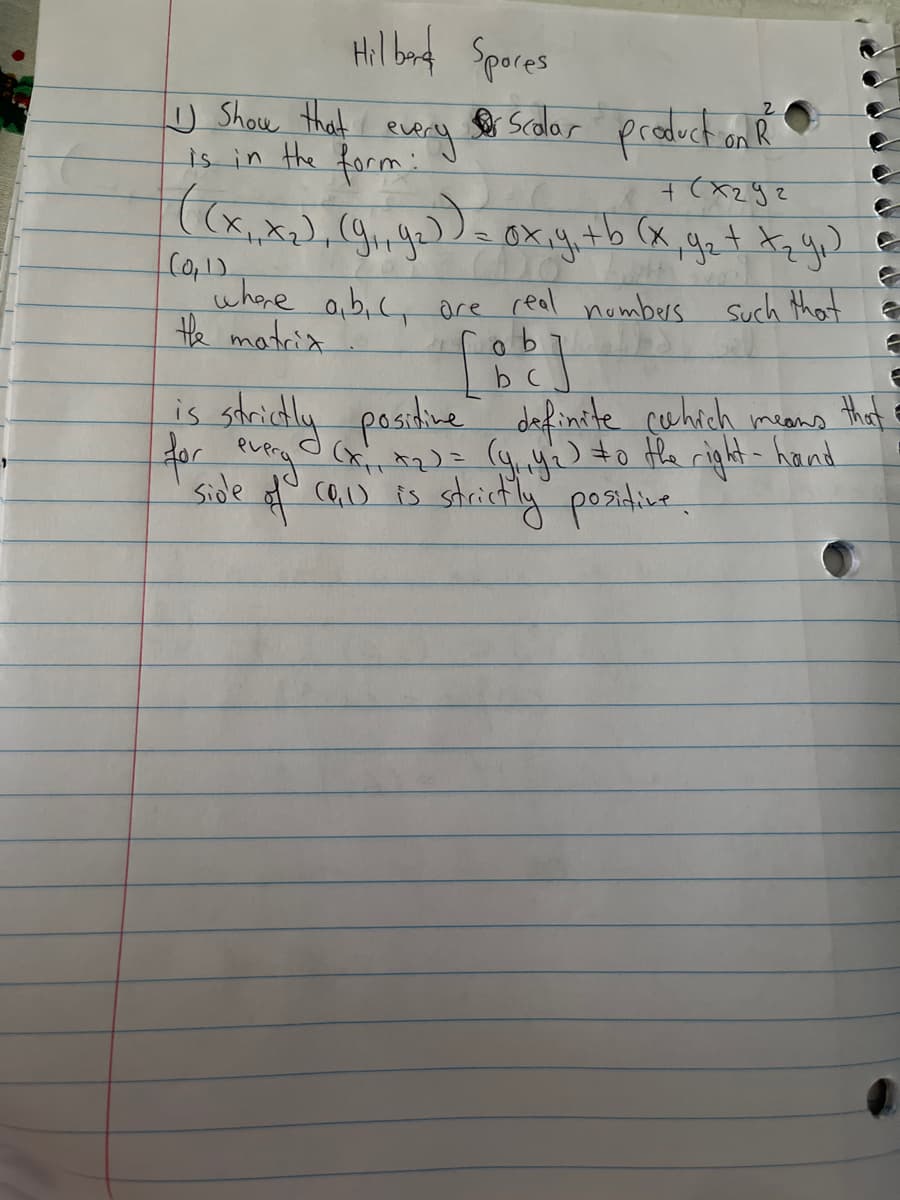 Hilbert Spaces
1) Show that every Scalar product on R²
is in the form:
+ cx₂y₂
((x₁,x₂), (y₁,y₂)) = ax₁y₁ + b (x₁y₂ + x₂y₁)
(0,1)
where a,b,c, are real numbers such that
the matrix .
[ a b
b c ]
is strictly positive definite (which means that
for every (x₁, x₂) = (y₁,y₂) ≠0 the right-hand
side of (0,1) is strictly positive.